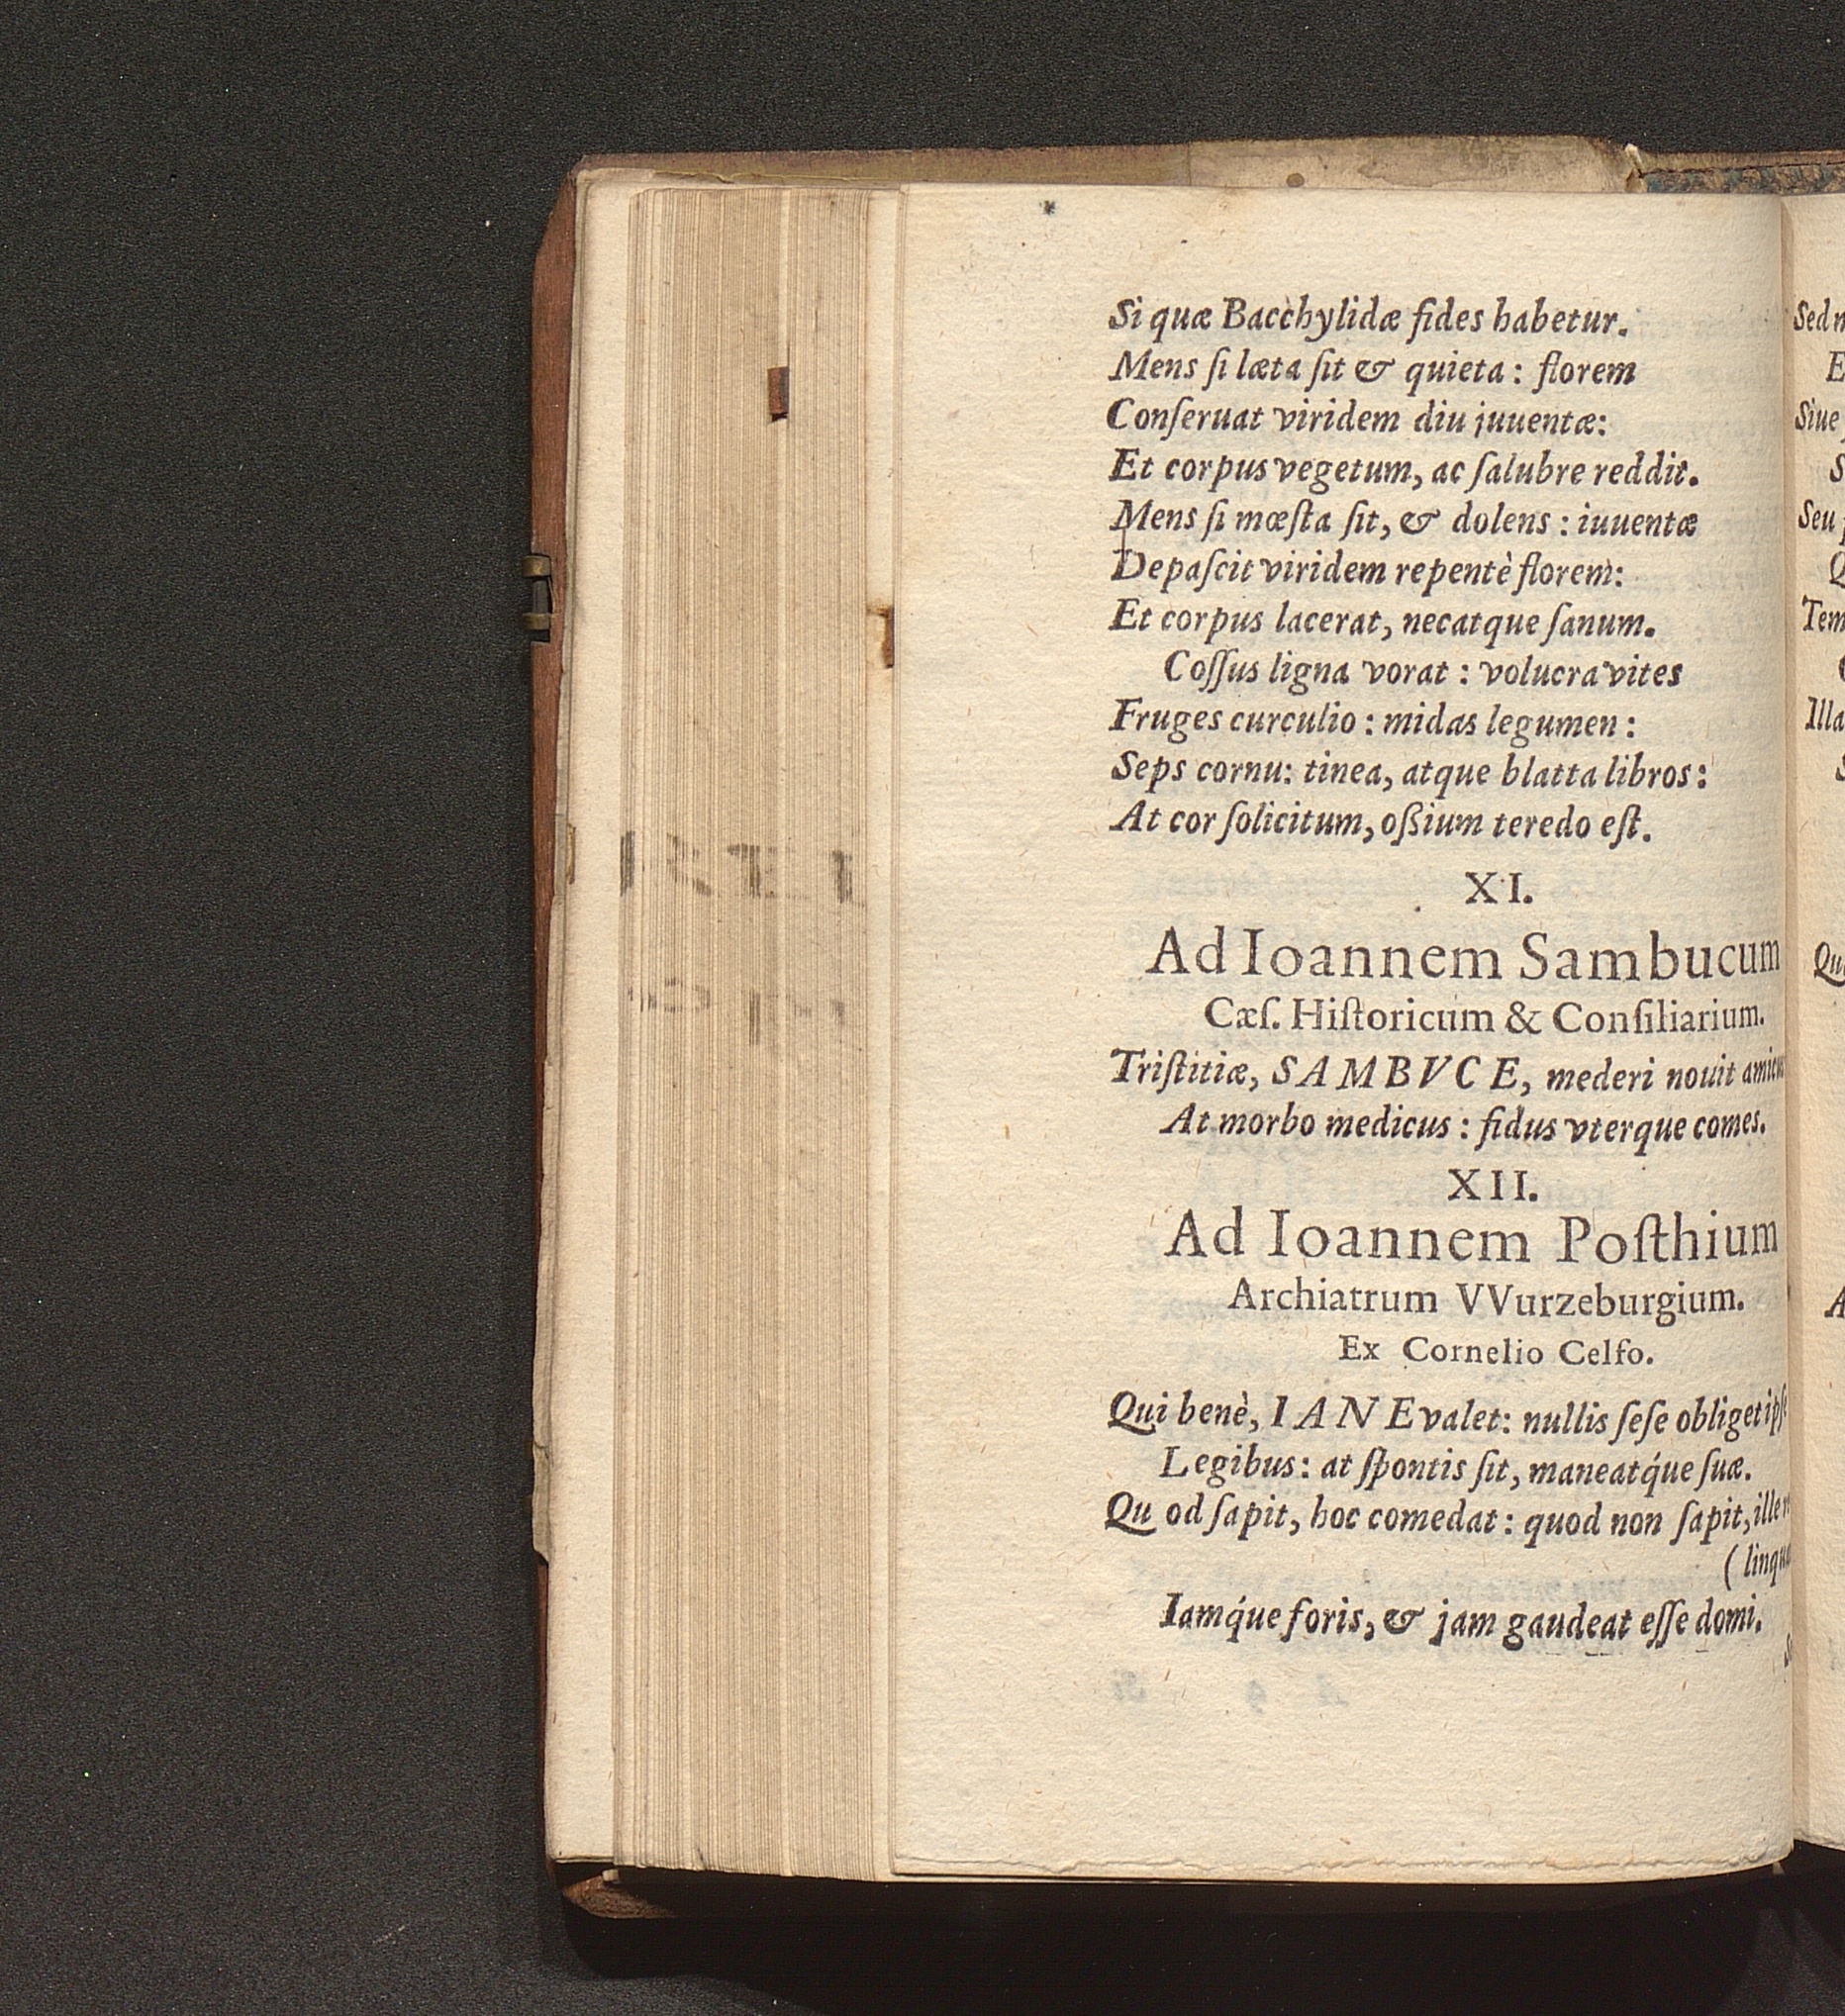 Si quæ Bacchylidæ fides habetur.
Mens ſi læta ſit & quieta: florem
Conſeruat viridem diu juuentæ:
Et corpus vegetum, ac ſalubre reddit.
Mens ſi mœſta ſit, & dolens: iuuentæ
Depaſcit viridem repentè florem:
Et corpus lacerat, necatque ſanum.
Coſſus ligna vorat: volucra vites
Fruges curculio: midas legumen:
Seps cornu: tinea, atque blatta libros:
At cor ſolicitum, oſsium teredo eſt.
XI.
Ad Ioannem Sambucum
Cæſ. Hiſtoricum & Conſiliarium.
Triſtitiæ, SAMBVCE, mederi nouit
At morbo medicus: fidus vterque comes.
XII.
Ad Ioannem Poſthium
Archiatrum VVurzeburgium.
Ex Cornelio Celſo.
Qui benè, IANE valet: nullis ſeſe obliget
Legibus: at ſpontis ſit, maneatq́ue ſuæ.
Qu od ſapit, hoc comedat: quod non ſapit, ille
Iamq́ue foris, & jam gaudeat eſſe domi.
Siue
Seu